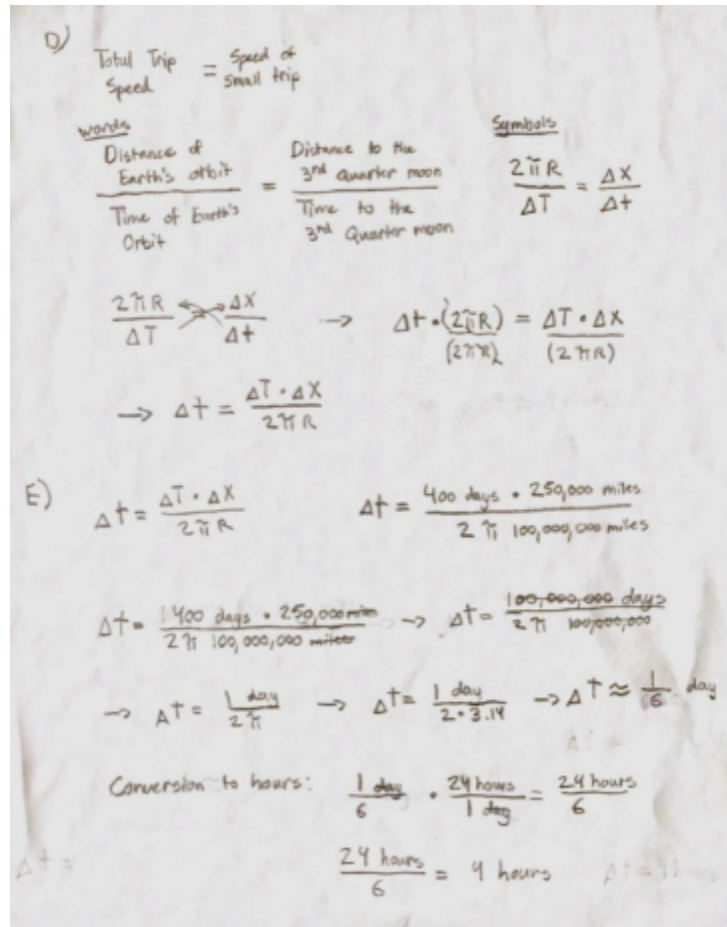 D)
Total Trip Speed = Speed of small trip
words
Symbols
Distance of Earth's orbit / Time of Earth's Orbit = Distance to the 3rd quarter moon / Time to the 3rd Quarter moon
2πR / ΔT = ΔX / Δt
2πR / ΔT ΔX / Δt → Δt · (2πR) / (2πR) = ΔT · ΔX / (2πR)
→ Δt = ΔT · ΔX / 2πR
E)
Δt = ΔT · ΔX / 2πR
Δt = 400 days · 250,000 miles / 2π 100,000,000 miles
Δt = 400 days · 250,000 miles / 2π 100,000,000 miles → Δt = 100,000,000 days / 2π 100,000,000
→ Δt = 1 day / 2π → Δt = 1 day / 2 · 3.14 → Δt ≈ 1/6 day
Conversion to hours: 1 day / 6 · 24 hours / 1 day = 24 hours / 6
24 hours / 6 = 4 hours
Δt =